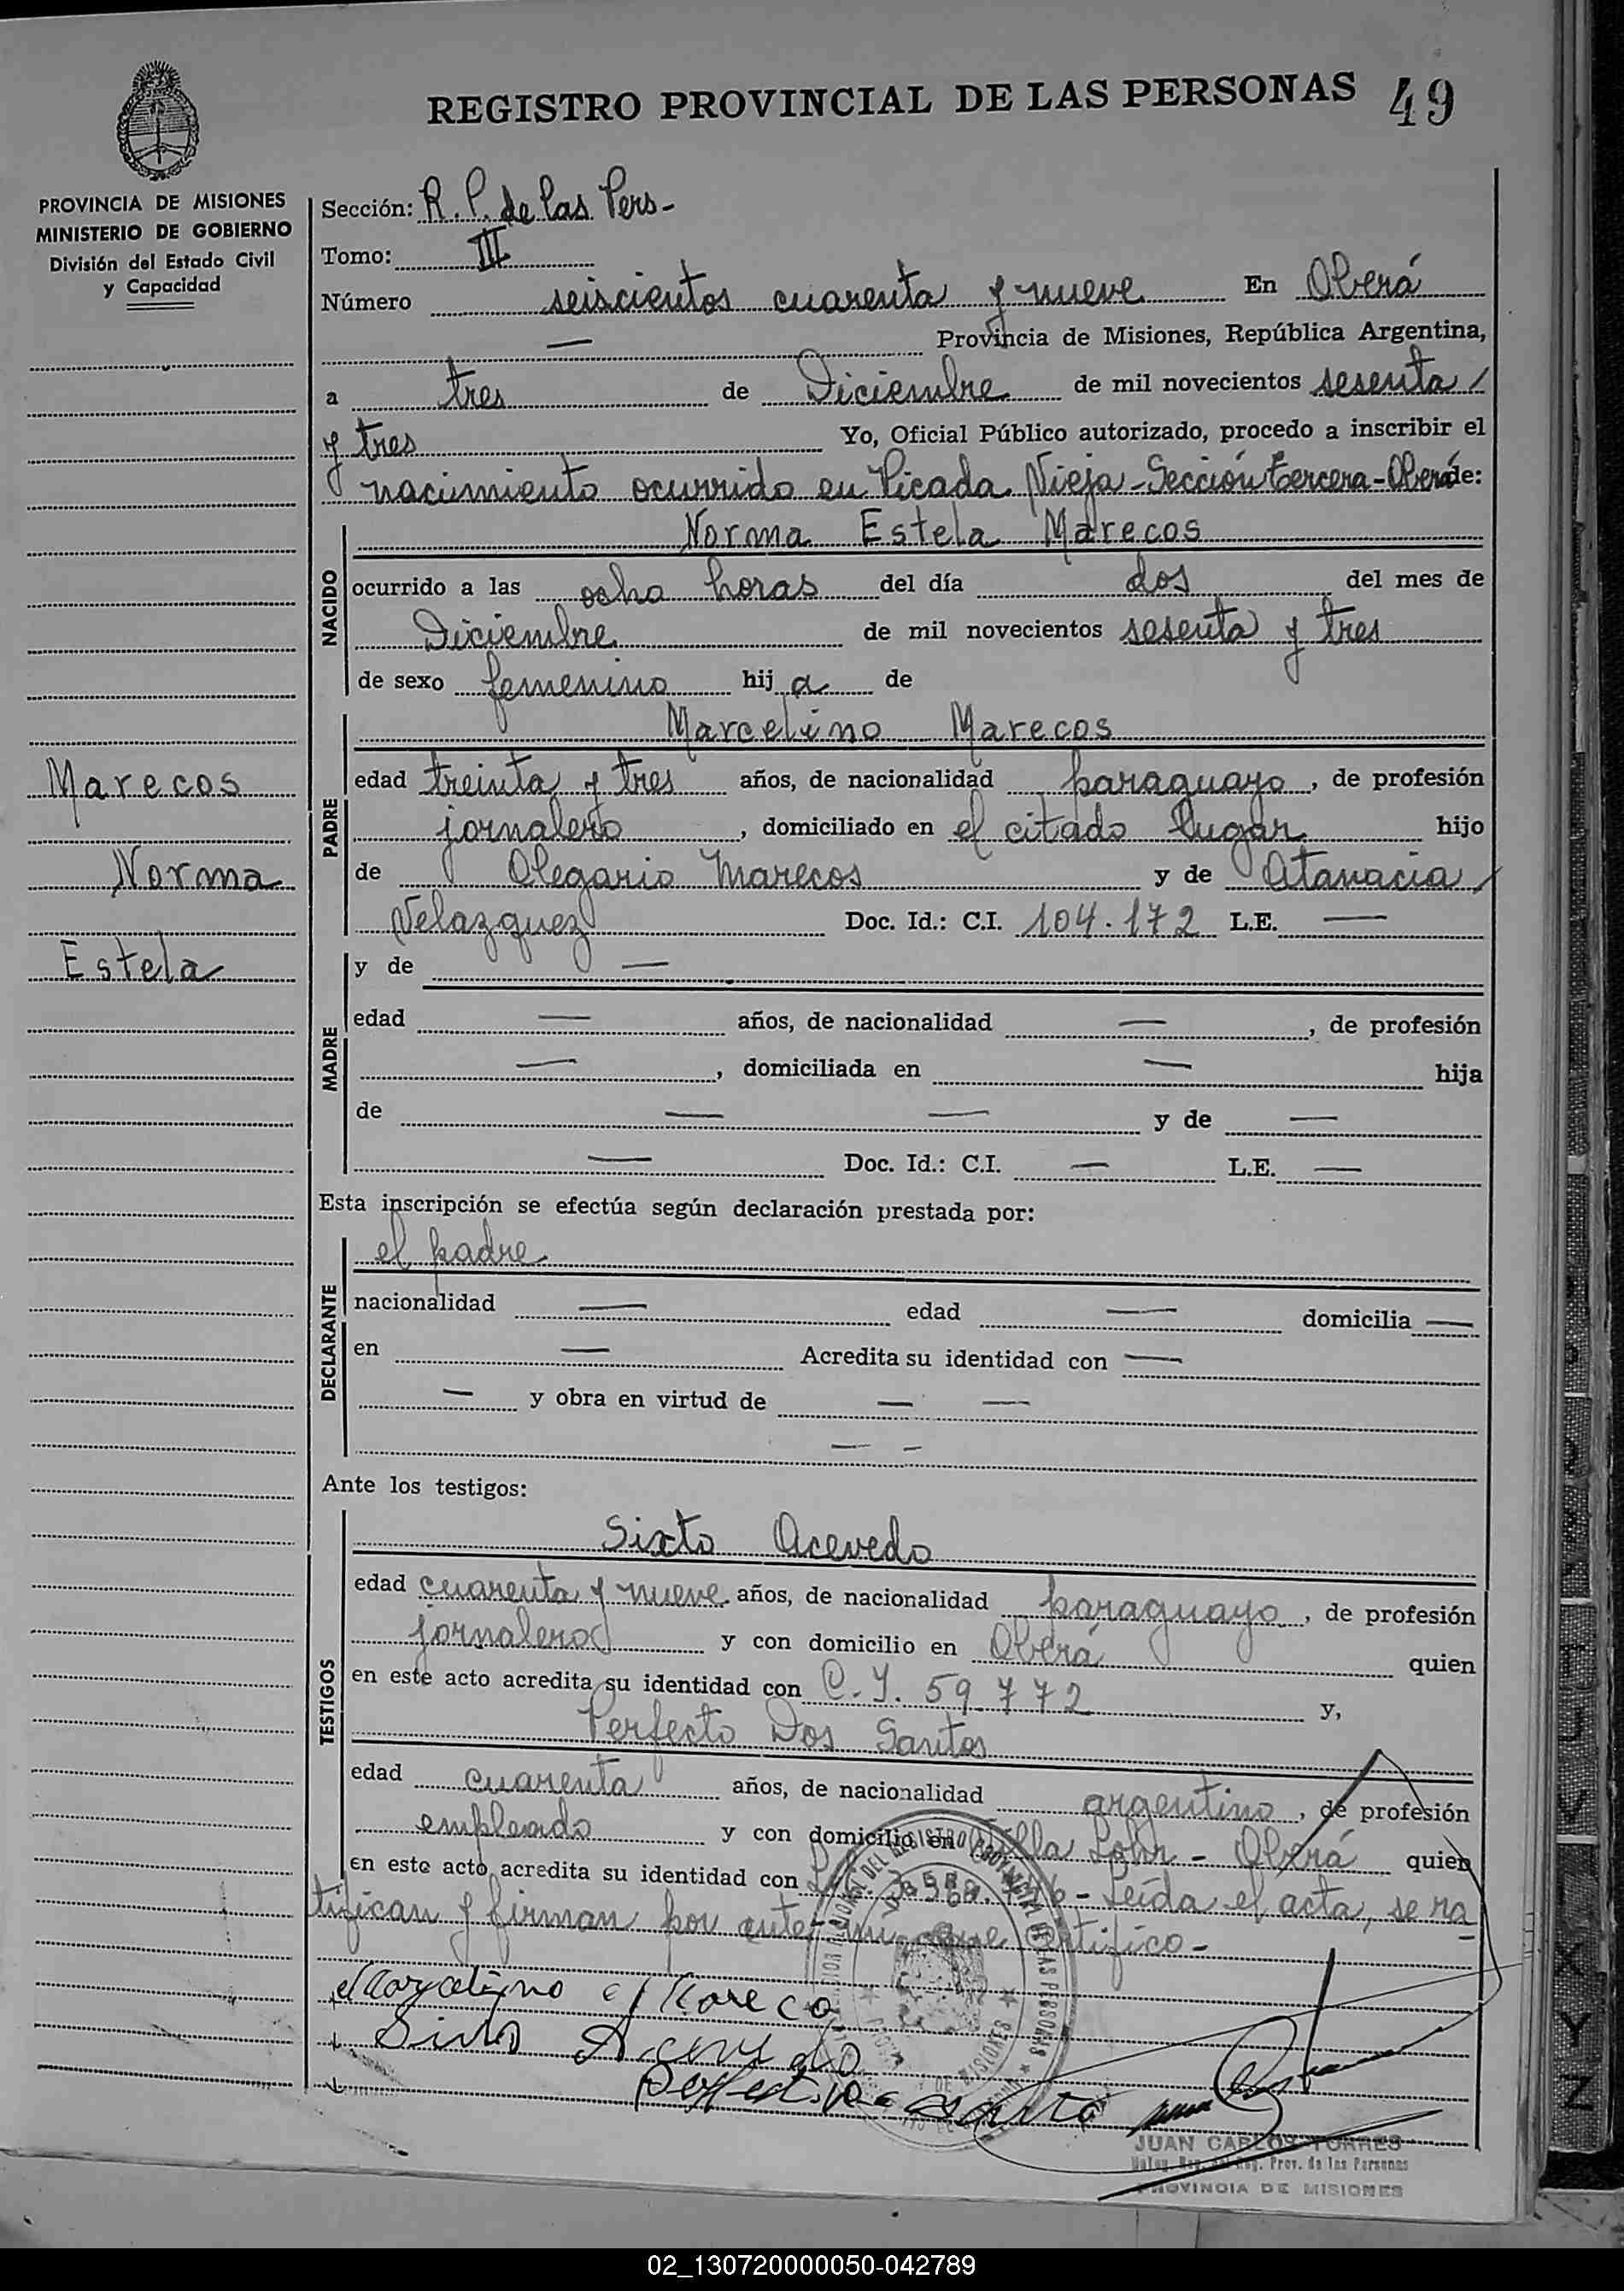 REGISTRO PROVINCIAL DE LAS PERSONAS 49
PROVINCIA DE MISIONES
MINISTERIO DE GOBIERNO
División del Estado Civil
y Capacidad
Marecos
Norma
Estela
Sección: R. P. de las Pers-
Tomo: III
Número seiscientos cuarenta y nueve En Oberá
— Provincia de Misiones, República Argentina,
a tres de Diciembre de mil novecientos sesenta /
y tres Yo, Oficial Público autorizado, procedo a inscribir el
nacimiento ocurrido en Picada Vieja-Sección tercera-Oberá de:
NACIDO
Norma Estela Marecos
ocurrido a las ocho horas del día dos del mes de
Diciembre de mil novecientos sesenta y tres
de sexo femenino hij a de
PADRE
Marcelino Marecos
edad treinta y tres años, de nacionalidad paraguayo, de profesión
jornalero, domiciliado en el citado lugar hijo
de Olegario Marecos y de Atanacia /
Velazquez Doc. Id.: C.I. 104.172 L.E. —
MADRE
y de —
edad — años, de nacionalidad —, de profesión
—, domiciliada en — hija
de — — y de —
— Doc. Id.: C.I. — L.E. —
Esta inscripción se efectúa según declaración prestada por:
DECLARANTE
el padre
nacionalidad — edad — domicilia —
en — Acredita su identidad con —
— y obra en virtud de — —
— —
Ante los testigos:
TESTIGOS
Sixto Acevedo
edad cuarenta y nueve años, de nacionalidad paraguayo, de profesión
jornalero y con domicilio en Oberá quien
en este acto acredita su identidad con C.I. 59.772 y,
Perfecto Dos Santos
edad cuarenta años, de nacionalidad argentino, de profesión
empleado y con domicilio en Villa - Oberá quien
en este acto acredita su identidad con - Leída el acta, se ra
tifican y firman por ante mi que certifico-
Marcelino Mareco
Sixto Acevedo
Perfecto Dos Santo
JUAN CARLOS TORRES
Reg. Prov. de las Personas
PROVINCIA DE MISIONES
02_130720000050-042789